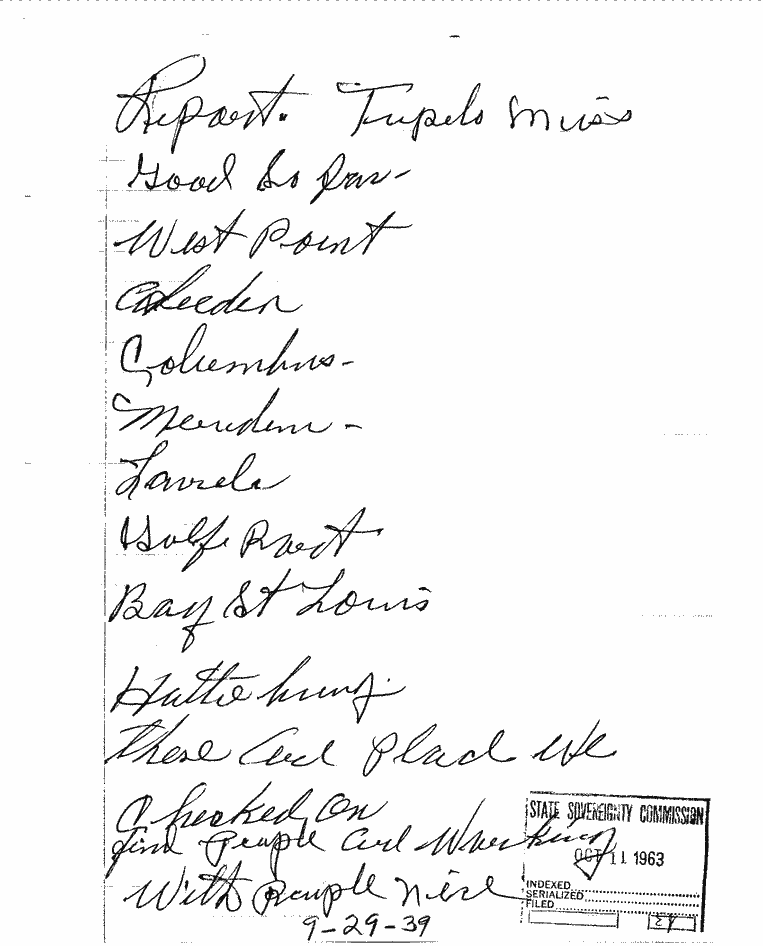 Report. Tupelo Miss
Good So far -
West Point
Columbus -
Meridin -
Laurela
Golfe Poart
Bay St Louis
these Are Place We
Checked, On
find people Are Working
With people Nice
STATE SOVEREIGNTY COMMISSION
OCT 11 1963
INDEXED
SERIALIZED
FILED
9-29-39